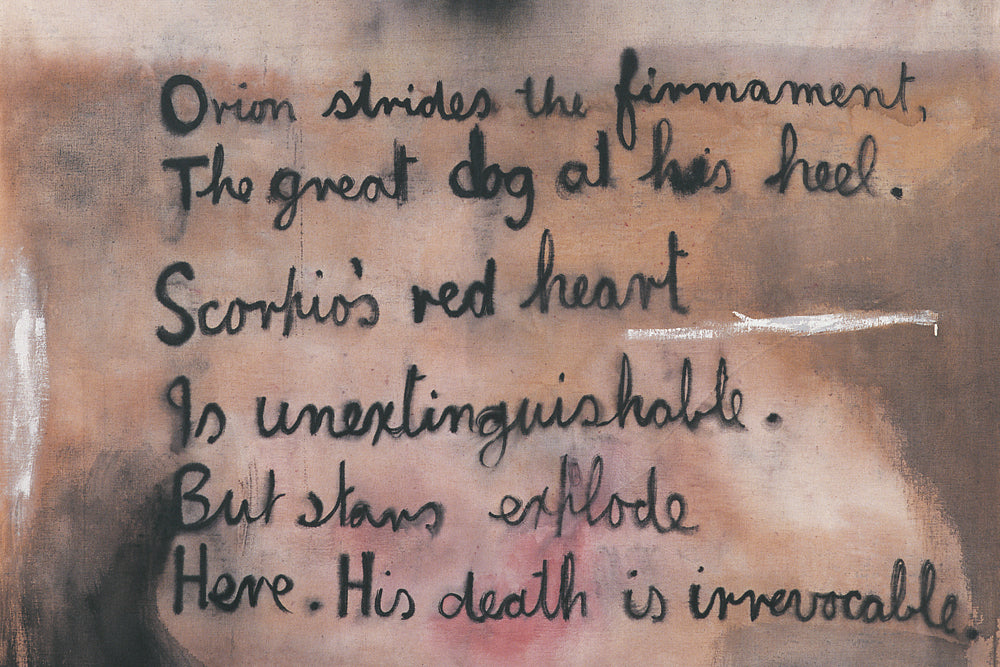 Orion strides the firmament,
The great dog at his heel.
Scorpio's red heart
Is unextinguishable.
But stars explode
Here. His death is irrevocable.